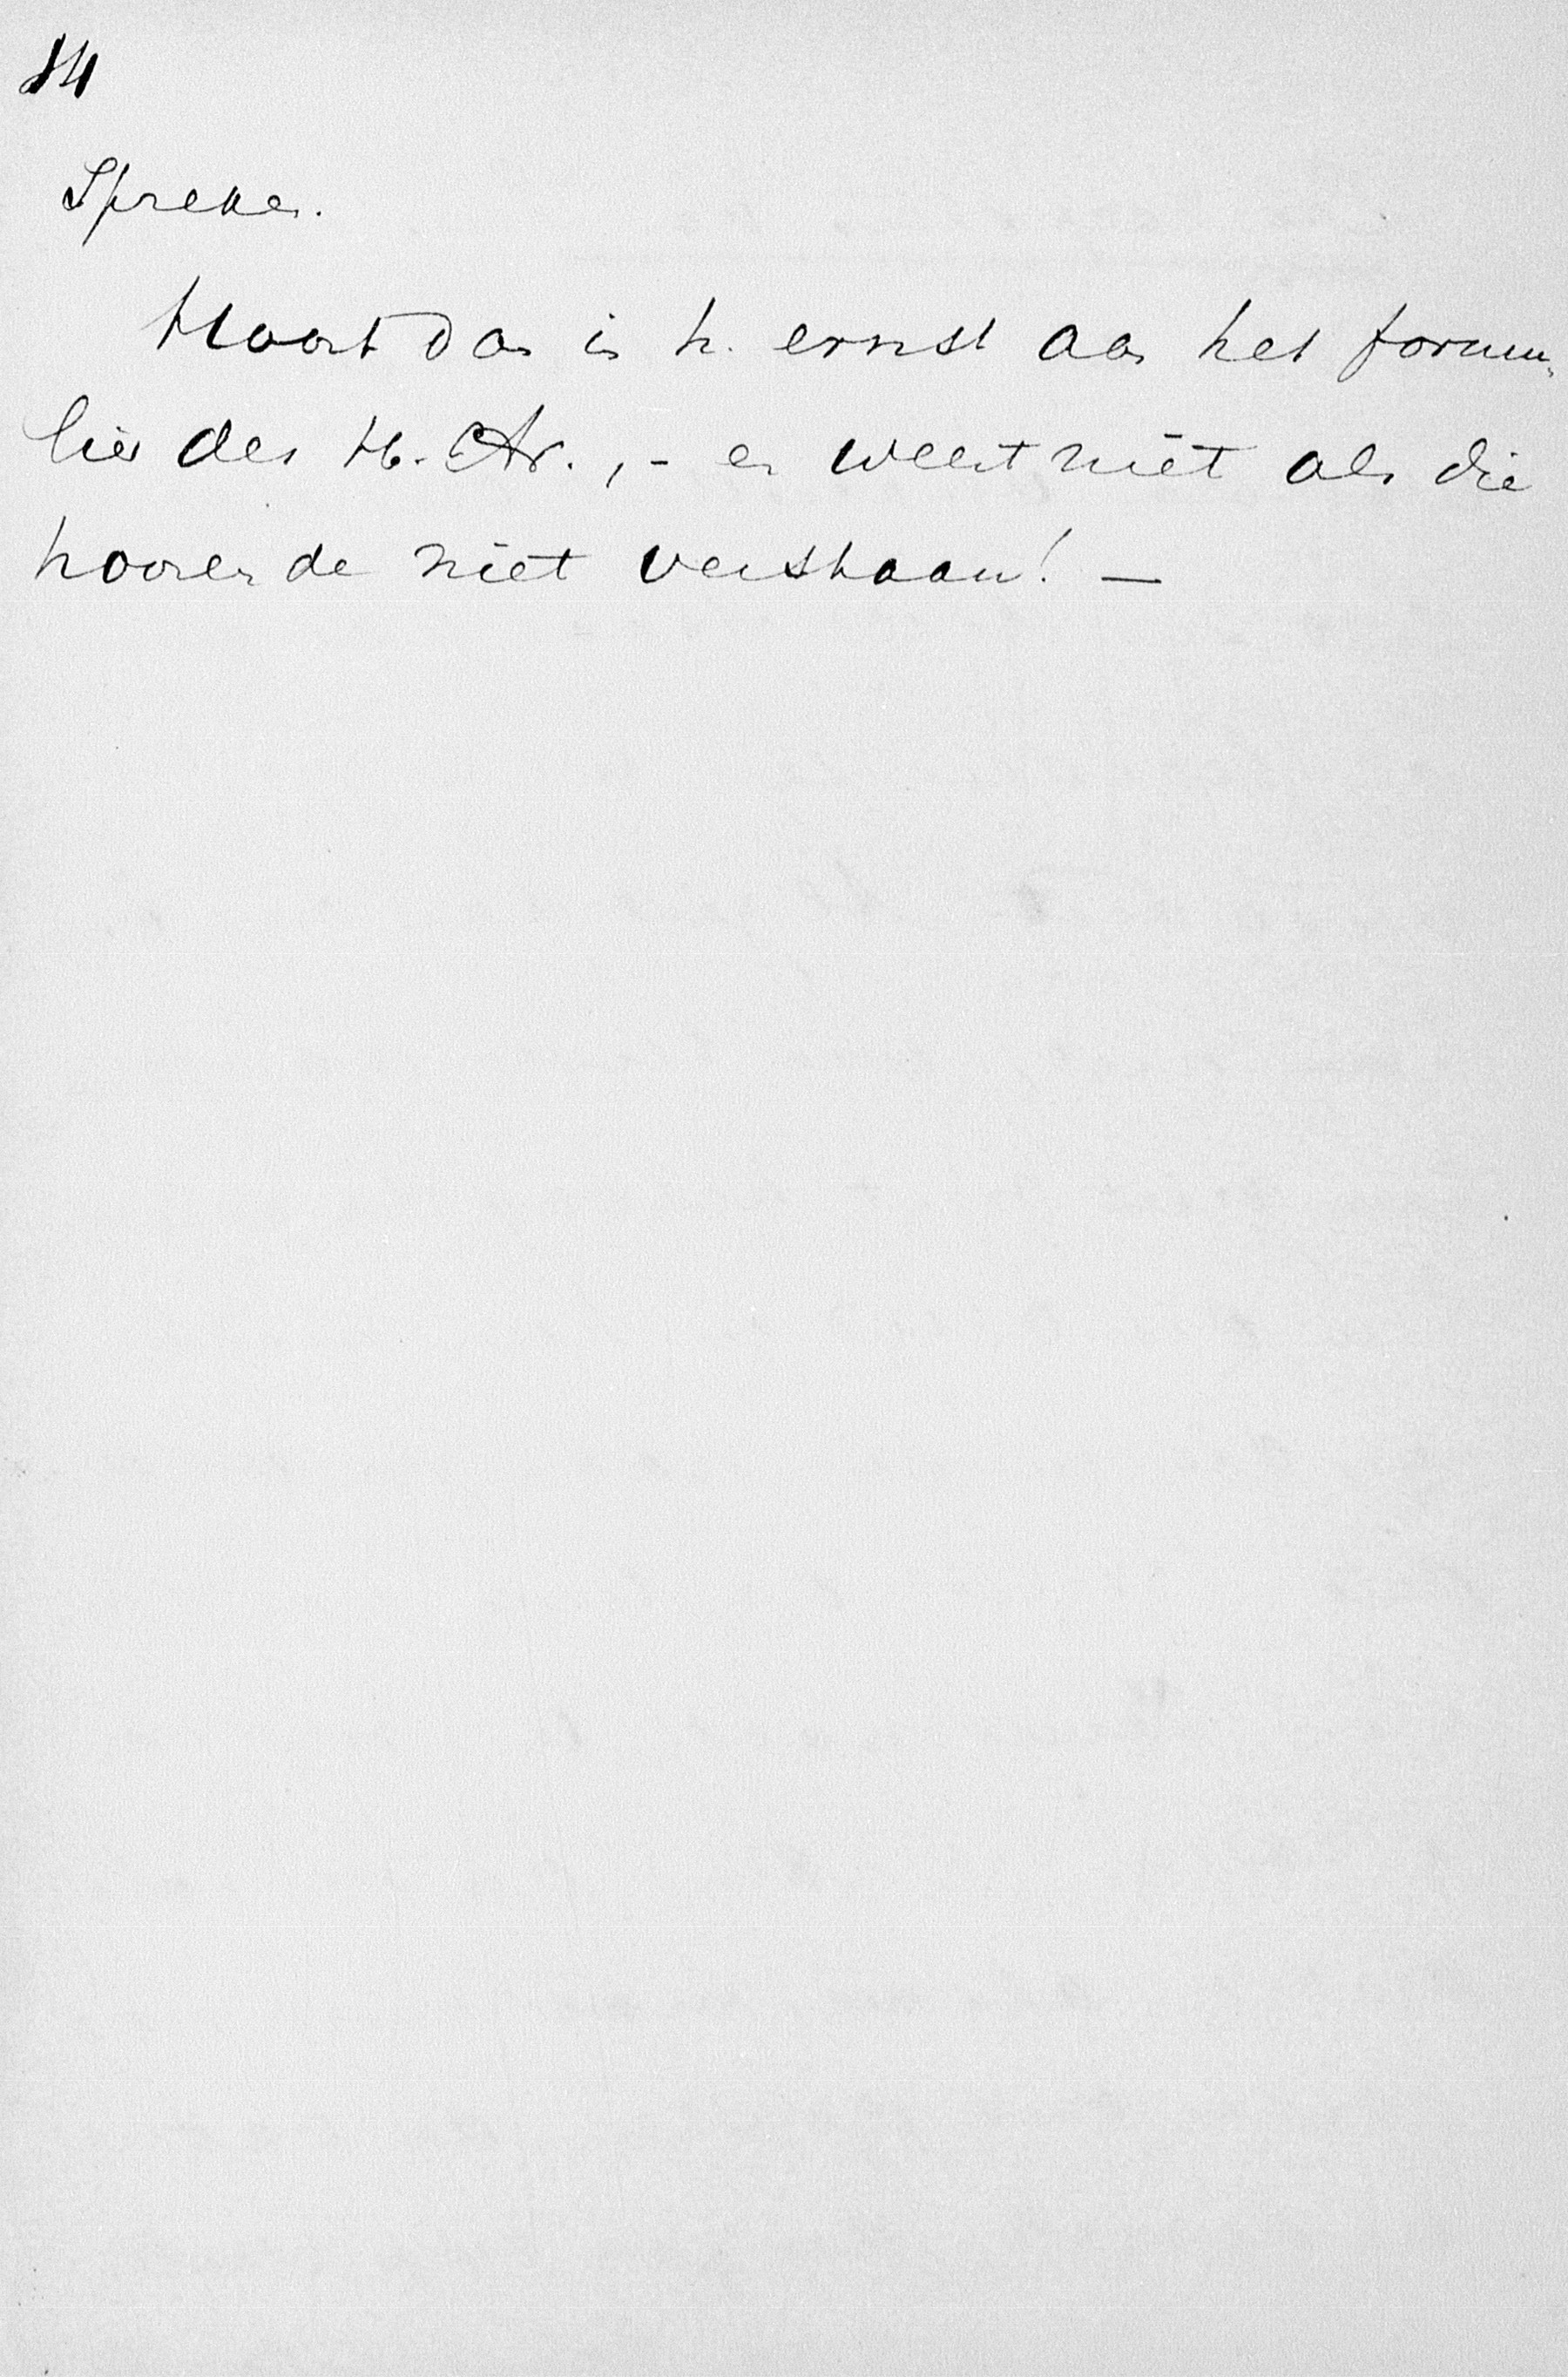 14
Spreken.
Hoort dan in h. ernst aan het formu-
lier des H. Av., - en weest niet als die
hoorende niet verstaan! —